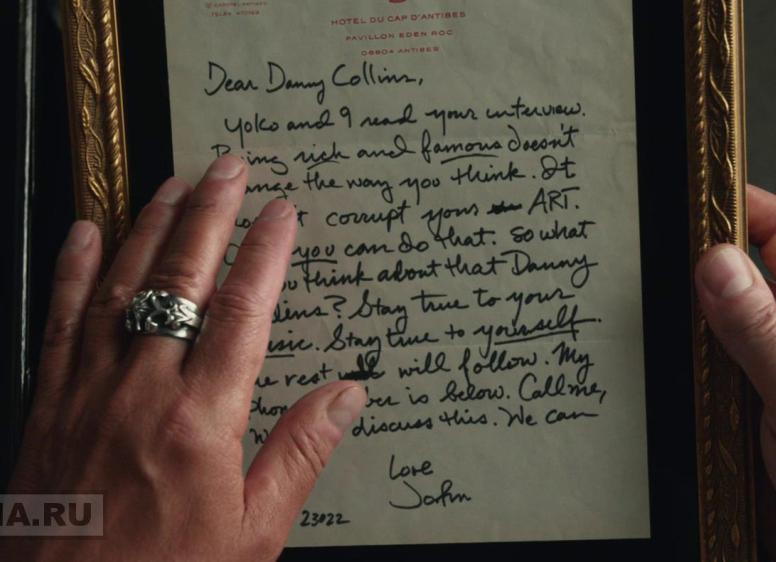 HOTEL DU CAP D'ANTIBES
PAVILLON EDEN ROC
06604 ANTIBES
Dear Danny Collins,
Yoko and I read your interview.
Being rich and famous doesn't
the way you think. It
corrupt your ART.
you can do that. So what
you think about that Danny
? Stay true to your
music. Stay true to yourself.
rest will follow. My
is below. Call me,
discuss this. We can
Love
John
23022
IA.RU